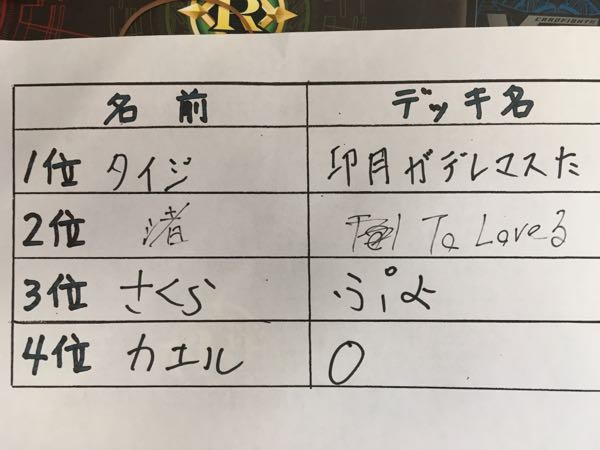 R
CARDFIGHT!!
名前 デッキ名
1位 タイジ 卯月がデレマスた
2位 渚 To Loveる
3位 さくら ぷよ
4位 カエル 0